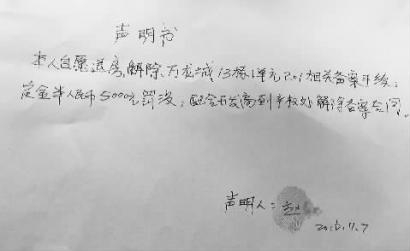 声明书
本人自愿退房,解除万龙城13栋1单元201相关备案手续,
定金半人民币5000元罚没,配合开发商到产权处解除备案合同。
声明人:赵
2016.11.7